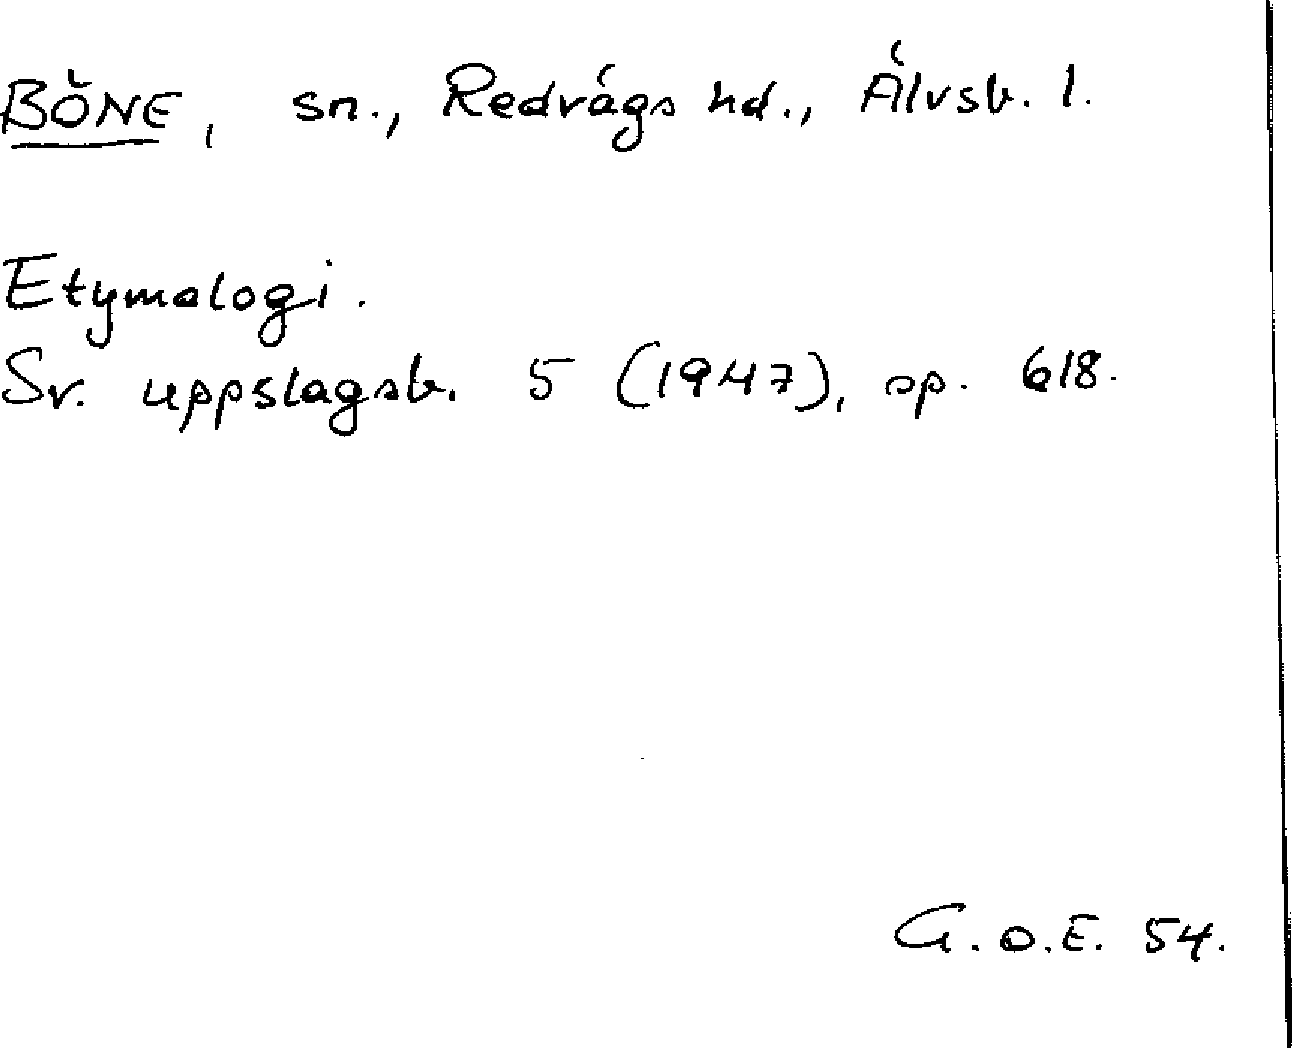 BÖNE, sn., Redvägs hd., Älvsb. l.
Etymologi.
Sv. uppslagsb. 5 (1947), sp. 618.
G.O.E. 54.